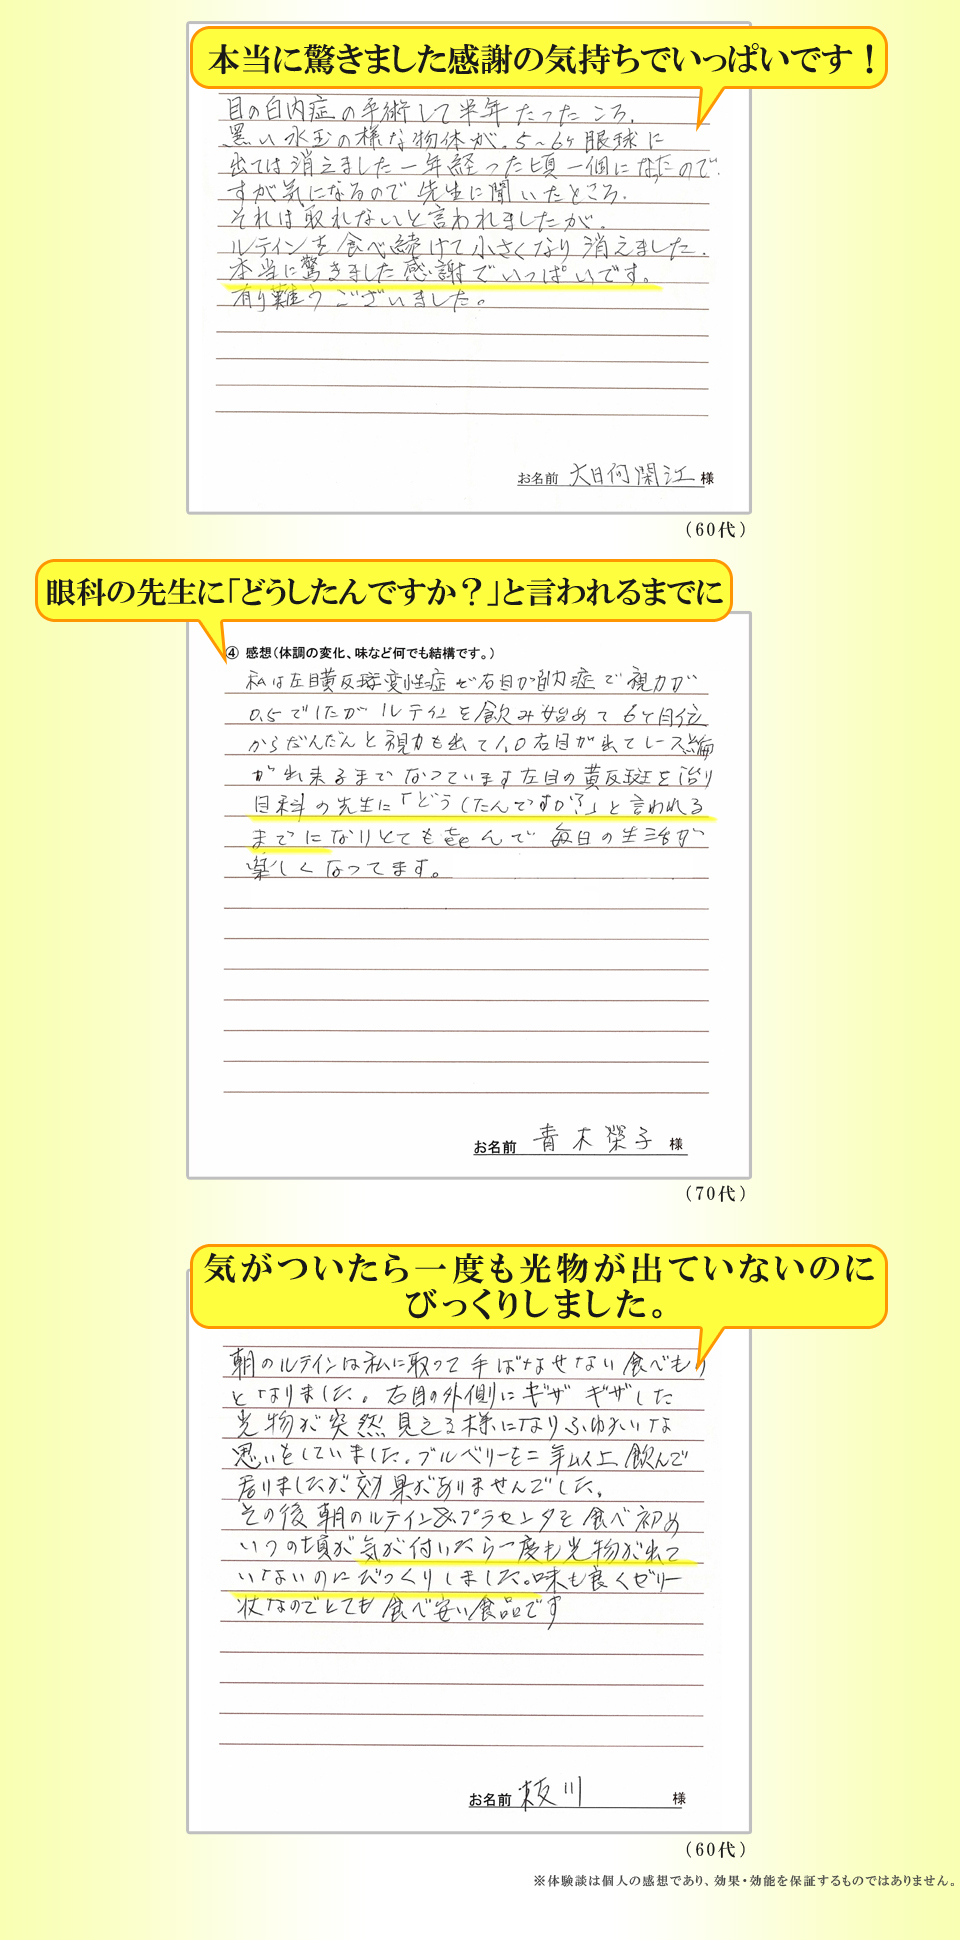 本当に驚きました感謝の気持ちでいっぱいです！
目の白内症の手術して半年たったころ、
黒い水玉の様な物体が、5～6ヶ眼球に
出ては消えました一年経った頃一個になったので、
すが気になるので先生に聞いたところ、
それは取れないと言われましたが、
ルテインを食べ続けて小さくなり消えました、
本当に驚きました感謝でいっぱいです。
有り難うございました。
お名前 大日向閑江 様
（60代）
眼科の先生に「どうしたんですか？」と言われるまでに
④ 感想（体調の変化、味など何でも結構です。）
私は左目黄反斑変性症で右目が白内症で視力が
0.5でしたがルテインを飲み始めて6ヶ月位
からだんだんと視力も出て1.0右目が出てレース編
が出来るまでなっています左目の黄反斑を治り
目科の先生に「どうしたんですか？」と言われる
までになりとても喜んで毎日の生活が
楽しくなってます。
お名前 青木榮子 様
（70代）
気がついたら一度も光物が出ていないのに
びっくりしました。
朝のルテインは私に取って手ばなせない食べもり
となりました。右目の外側にギザギザした
光物が突然見える様になりふゆかいな
思いをしていました。ブルベリーを二年以上飲んで
居りましたが効果がありませんでした。
その後朝のルテイン&プラセンタを食べ初め
いつの頃か気が付いたら一度も光物が出て
いないのにびっくりしました。味も良くゼリー
状なのでとても食べ安い食品です
お名前 板川 様
（60代）
※体験談は個人の感想であり、効果・効能を保証するものではありません。